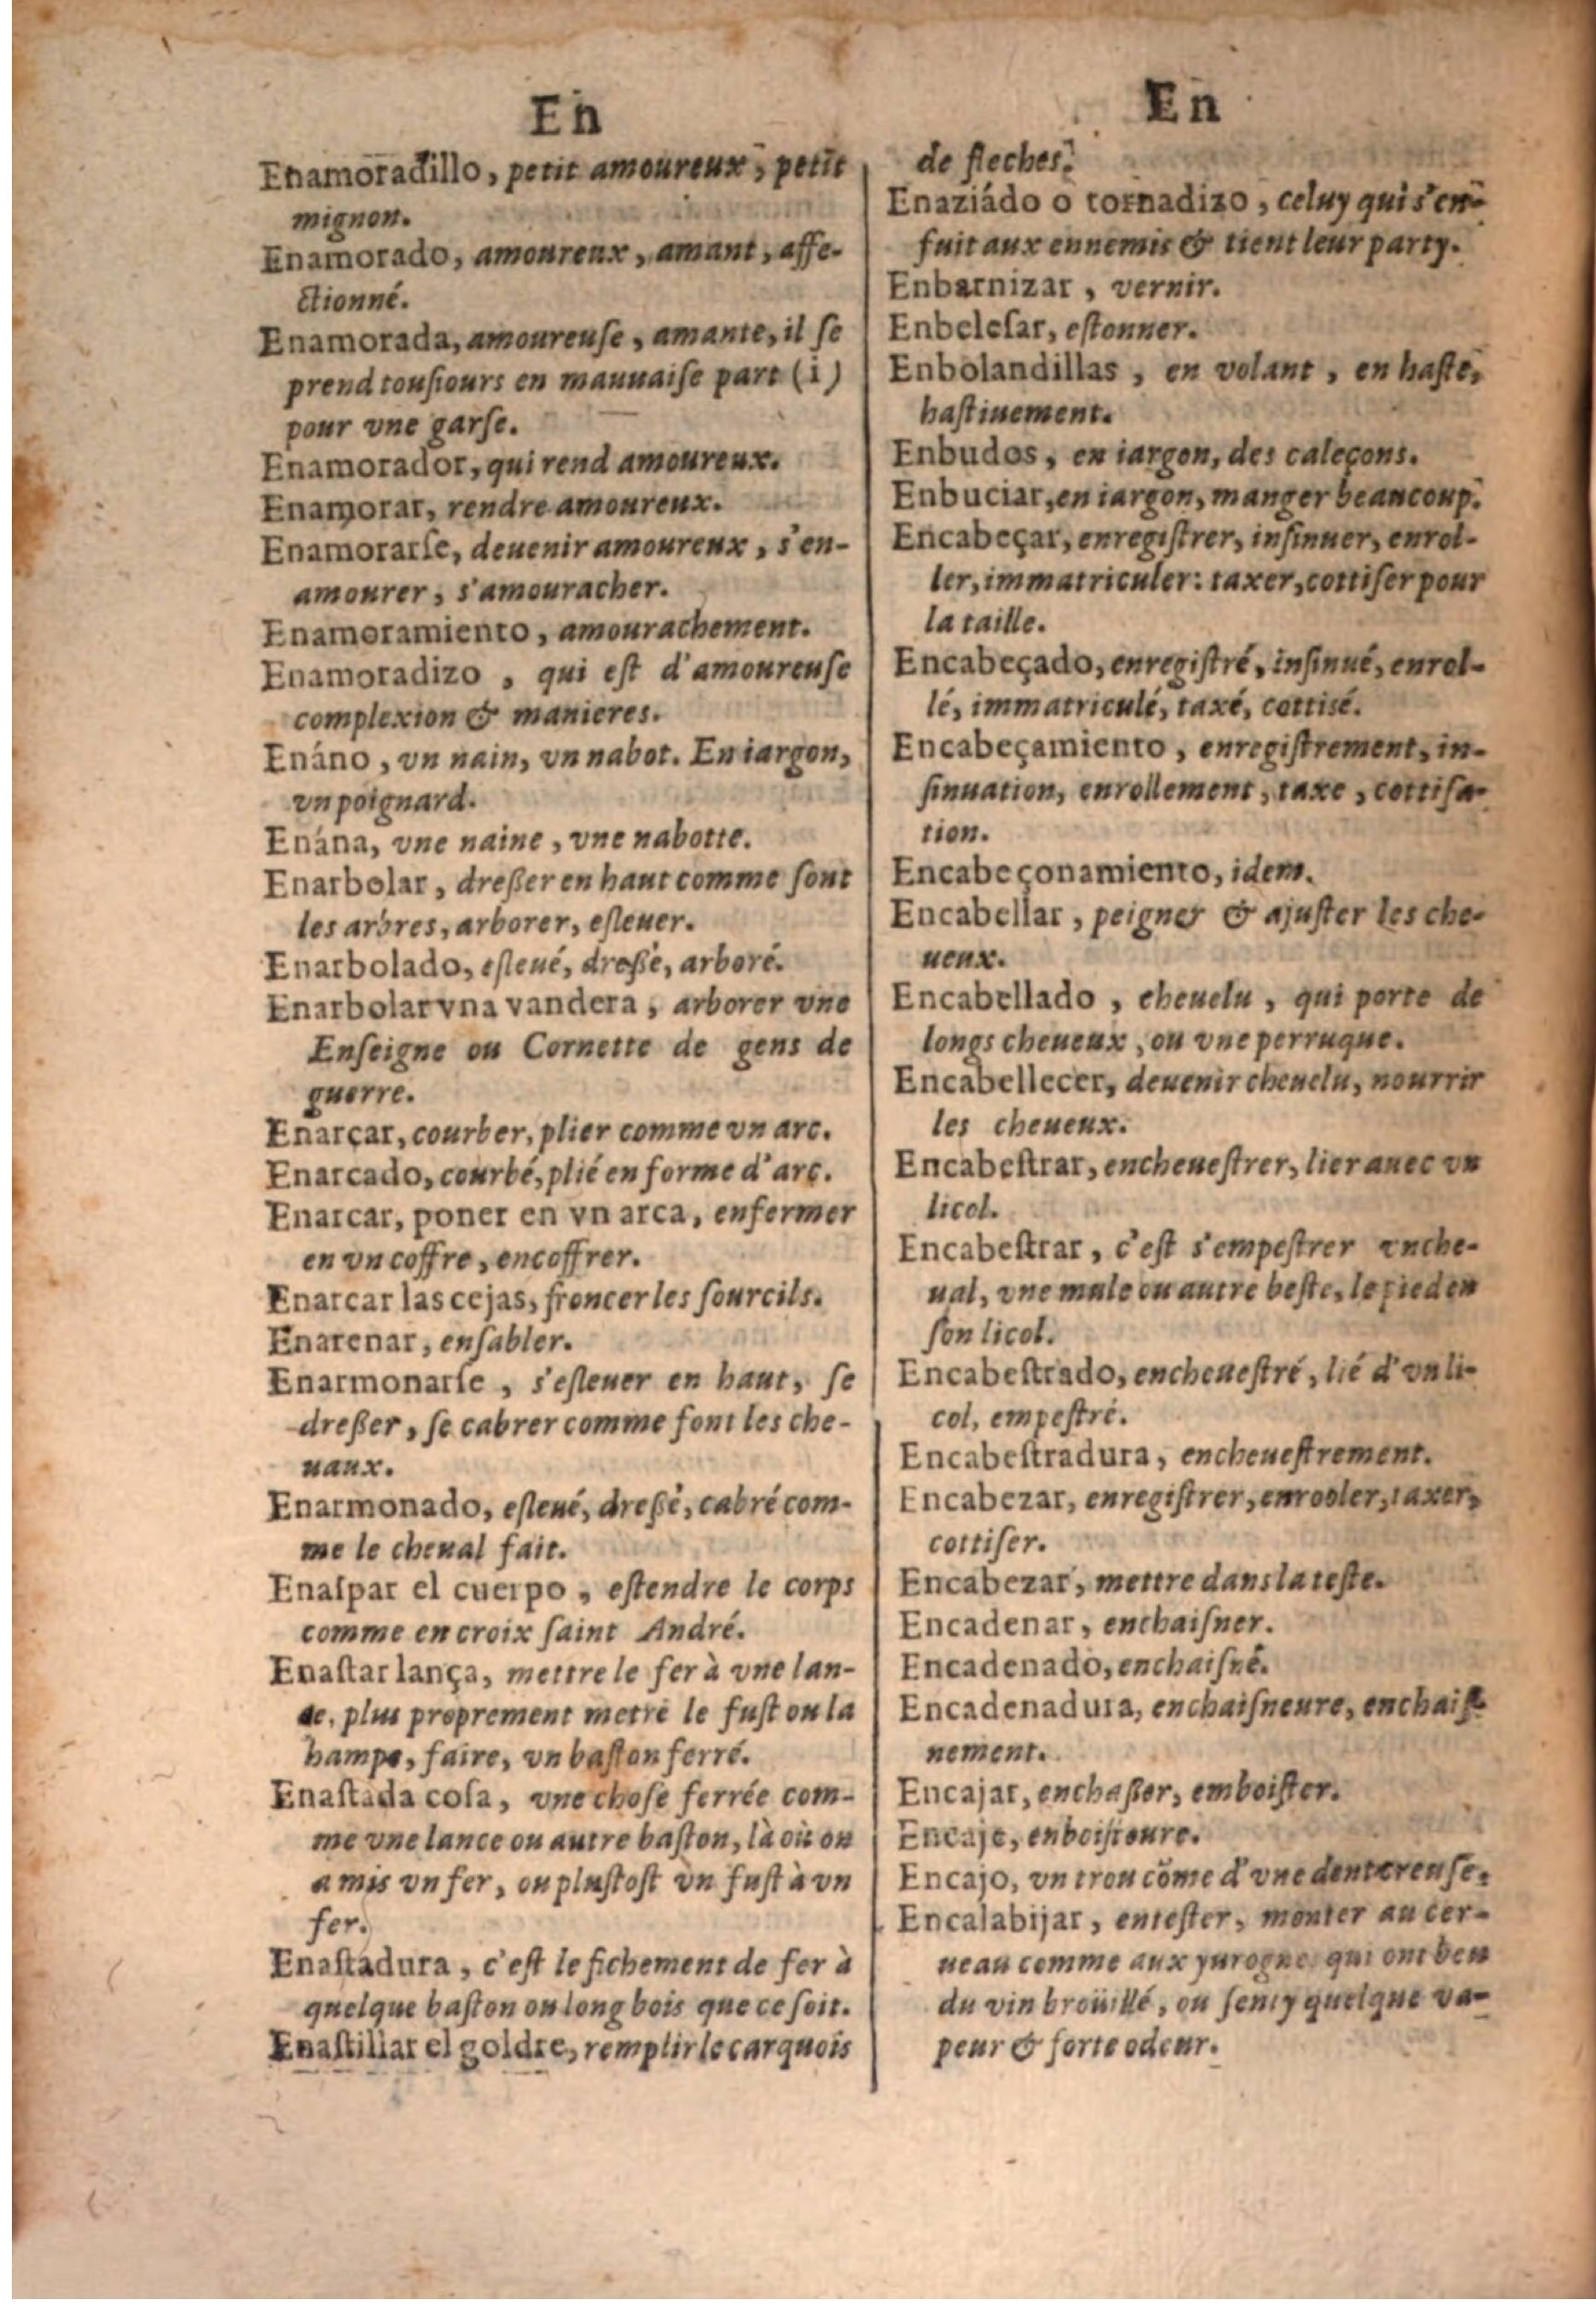 En
Enamoradillo, petit amoureux, petit
mignon.
Enamorado, amoureux, amant, affe-
ctionné.
Enamorada, amoureuſe, amante, il ſe
prend touſiours en mauuaiſe part (i)
pour vne garſe.
Enamorador, qui rend amoureux.
Enamorar, rendre amoureux.
Enamorarſe, deuenir amoureux, s'en-
amourer, s'amouracher.
Enamoramiento, amourachement.
Enamoradizo, qui eſt d'amoureuſe
complexion & manieres.
Enáno, vn nain, vn nabot. En iargon,
vn poignard.
Enána, vne naine, vne nabotte.
Enarbolar, dreßer en haut comme ſont
les arbres, arborer, eſleuer.
Enarbolado, eſleué, dreßé, arboré.
Enarbolar vna vandera, arborer vne
Enſeigne ou Cornette de gens de
guerre.
Enarcar, courber, plier comme vn arc.
Enarcado, courbé, plié en forme d'arc.
Enarcar, poner en vn arca, enfermer
en vn coffre, encoffrer.
Enarcar las cejas, froncer les ſourcils.
Enarenar, enſabler.
Enarmonarſe, s'eſleuer en haut, ſe
dreßer, ſe cabrer comme font les che-
uaux.
Enarmonado, eſleué, dreßé, cabré com-
me le cheual fait.
Enaſpar el cuerpo, eſtendre le corps
comme en croix ſaint André.
Enaſtar lança, mettre le fer à vne lan-
ce, plus proprement metre le fuſt ou la
hampe, faire, vn baſton ferré.
Enaſtada coſa, vne choſe ferrée com-
me vne lance ou autre baſton, là où on
a mis vn fer, ou pluſtoſt vn fuſt à vn
fer.
Enaſtadura, c'eſt le fichement de fer à
quelque baſton ou long bois que ce ſoit.
Enaſtillar el goldre, remplir le carquois
En
de fleches.
Enaziádo o tornadizo, celuy qui s'en-
fuit aux ennemis & tient leur party.
Enbarnizar, vernir.
Enbeleſar, eſtonner.
Enbolandillas, en volant, en haſte,
haſtiuement.
Enbudos, en iargon, des caleçons.
Enbuciar, en iargon, manger beaucoup.
Encabeçar, enregiſtrer, inſinuer, enrol-
ler, immatriculer: taxer, cottiſer pour
la taille.
Encabeçado, enregiſtré, inſinué, enrol-
lé, immatriculé, taxé, cottisé.
Encabeçamiento, enregiſtrement, in-
ſinuation, enrollement, taxe, cottiſa-
tion.
Encabeçonamiento, idem.
Encabellar, peigner & ajuſter les che-
ueux.
Encabellado, cheuelu, qui porte de
longs cheueux, ou vne perruque.
Encabellecer, deuenir cheuelu, nourrir
les cheueux.
Encabeſtrar, encheueſtrer, lier auec vn
licol.
Encabeſtrar, c'eſt s'empeſtrer vn che-
ual, vne mule ou autre beſte, le pied en
ſon licol.
Encabeſtrado, encheueſtré, lié d'vn li-
col, empeſtré.
Encabeſtradura, encheueſtrement.
Encabezar, enregiſtrer, enrooler, taxer,
cottiſer.
Encabezar, mettre dans la teſte.
Encadenar, enchaiſner.
Encadenado, enchaiſné.
Encadenadura, enchaiſneure, enchaiſ-
nement.
Encajar, enchaßer, emboiſter.
Encaje, enboiſteure.
Encajo, vn trou cõme d'vne dent creuſe.
Encalabijar, enteſter, monter au cer-
ueau comme aux yurogne qui ont beu
du vin broüillé, ou ſenty quelque va-
peur & forte odeur.